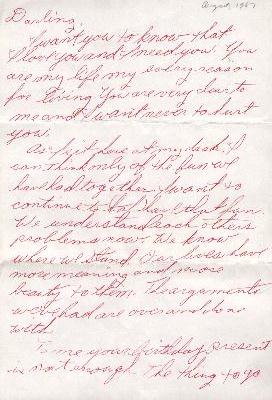 August, 1967
Darling,
I want you to know that
I love you and I need you. You
are my life my only reason
for living. You are very dear to
me and I want never to hurt
you.
As I sit here at my desk I
can think only of the fun we
have had together. I want to
continue to have that fun.
We understand each others
problems now. We know
where we stand. Our lives have
more meaning and more
beauty to them. The arguments
we've had are over and done
with.
To me your birthday present
is not enough. The thing to go